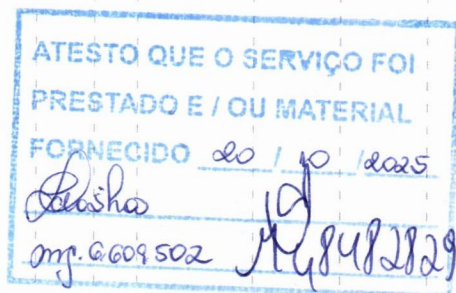 ATESTO QUE O SERVIÇO FOI
PRESTADO E / OU MATERIAL
FORNECIDO 20 / 10 / 2025
mg. 6609502 M 8482829